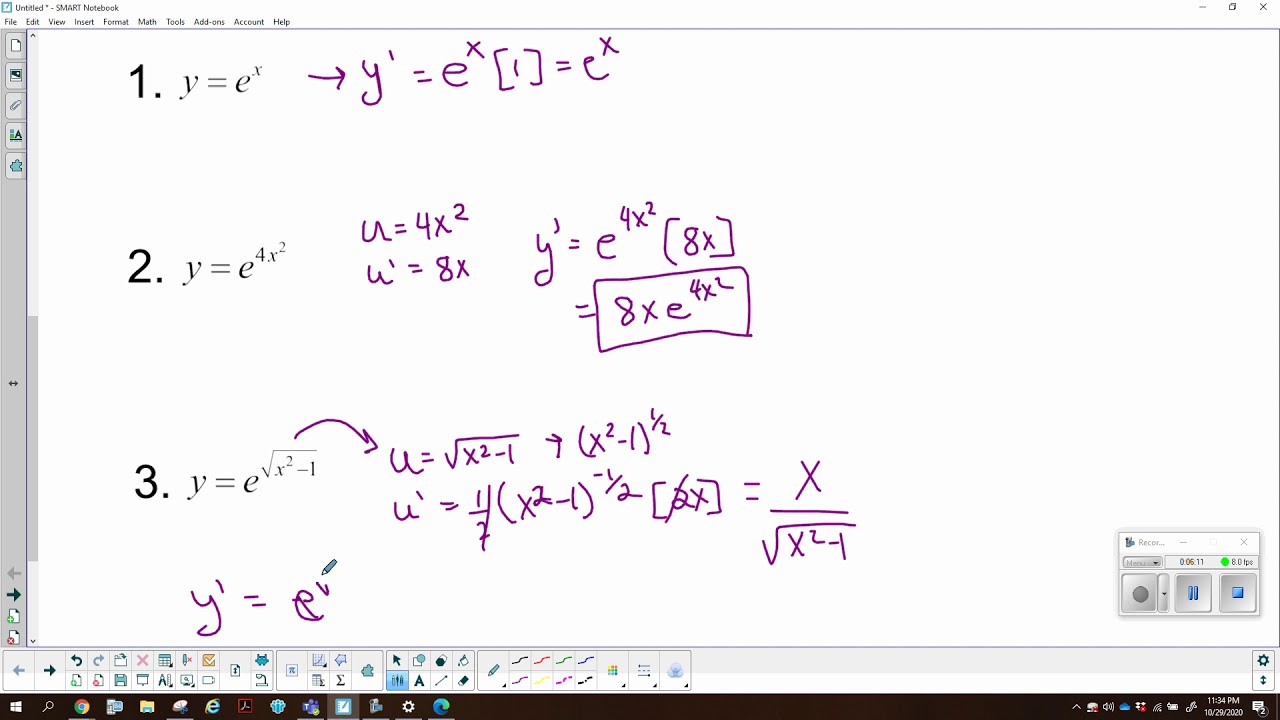 Untitled * - SMART Notebook
File Edit View Insert Format Math Tools Add-ons Account Help
1. y = e^x → y' = e^x [1] = e^x
u = 4x^2
u' = 8x
2. y = e^{4x^2}
y' = e^{4x^2} [8x]
= 8x e^{4x^2}
3. y = e^{\sqrt{x^2-1}}
u = \sqrt{x^2-1} → (x^2-1)^{1/2}
u' = 1/2 (x^2-1)^{-1/2} [2x] = x/\sqrt{x^2-1}
y' = e^
Recor...
Menu
0:06:11
8.0 fps
11:34 PM
10/29/2020